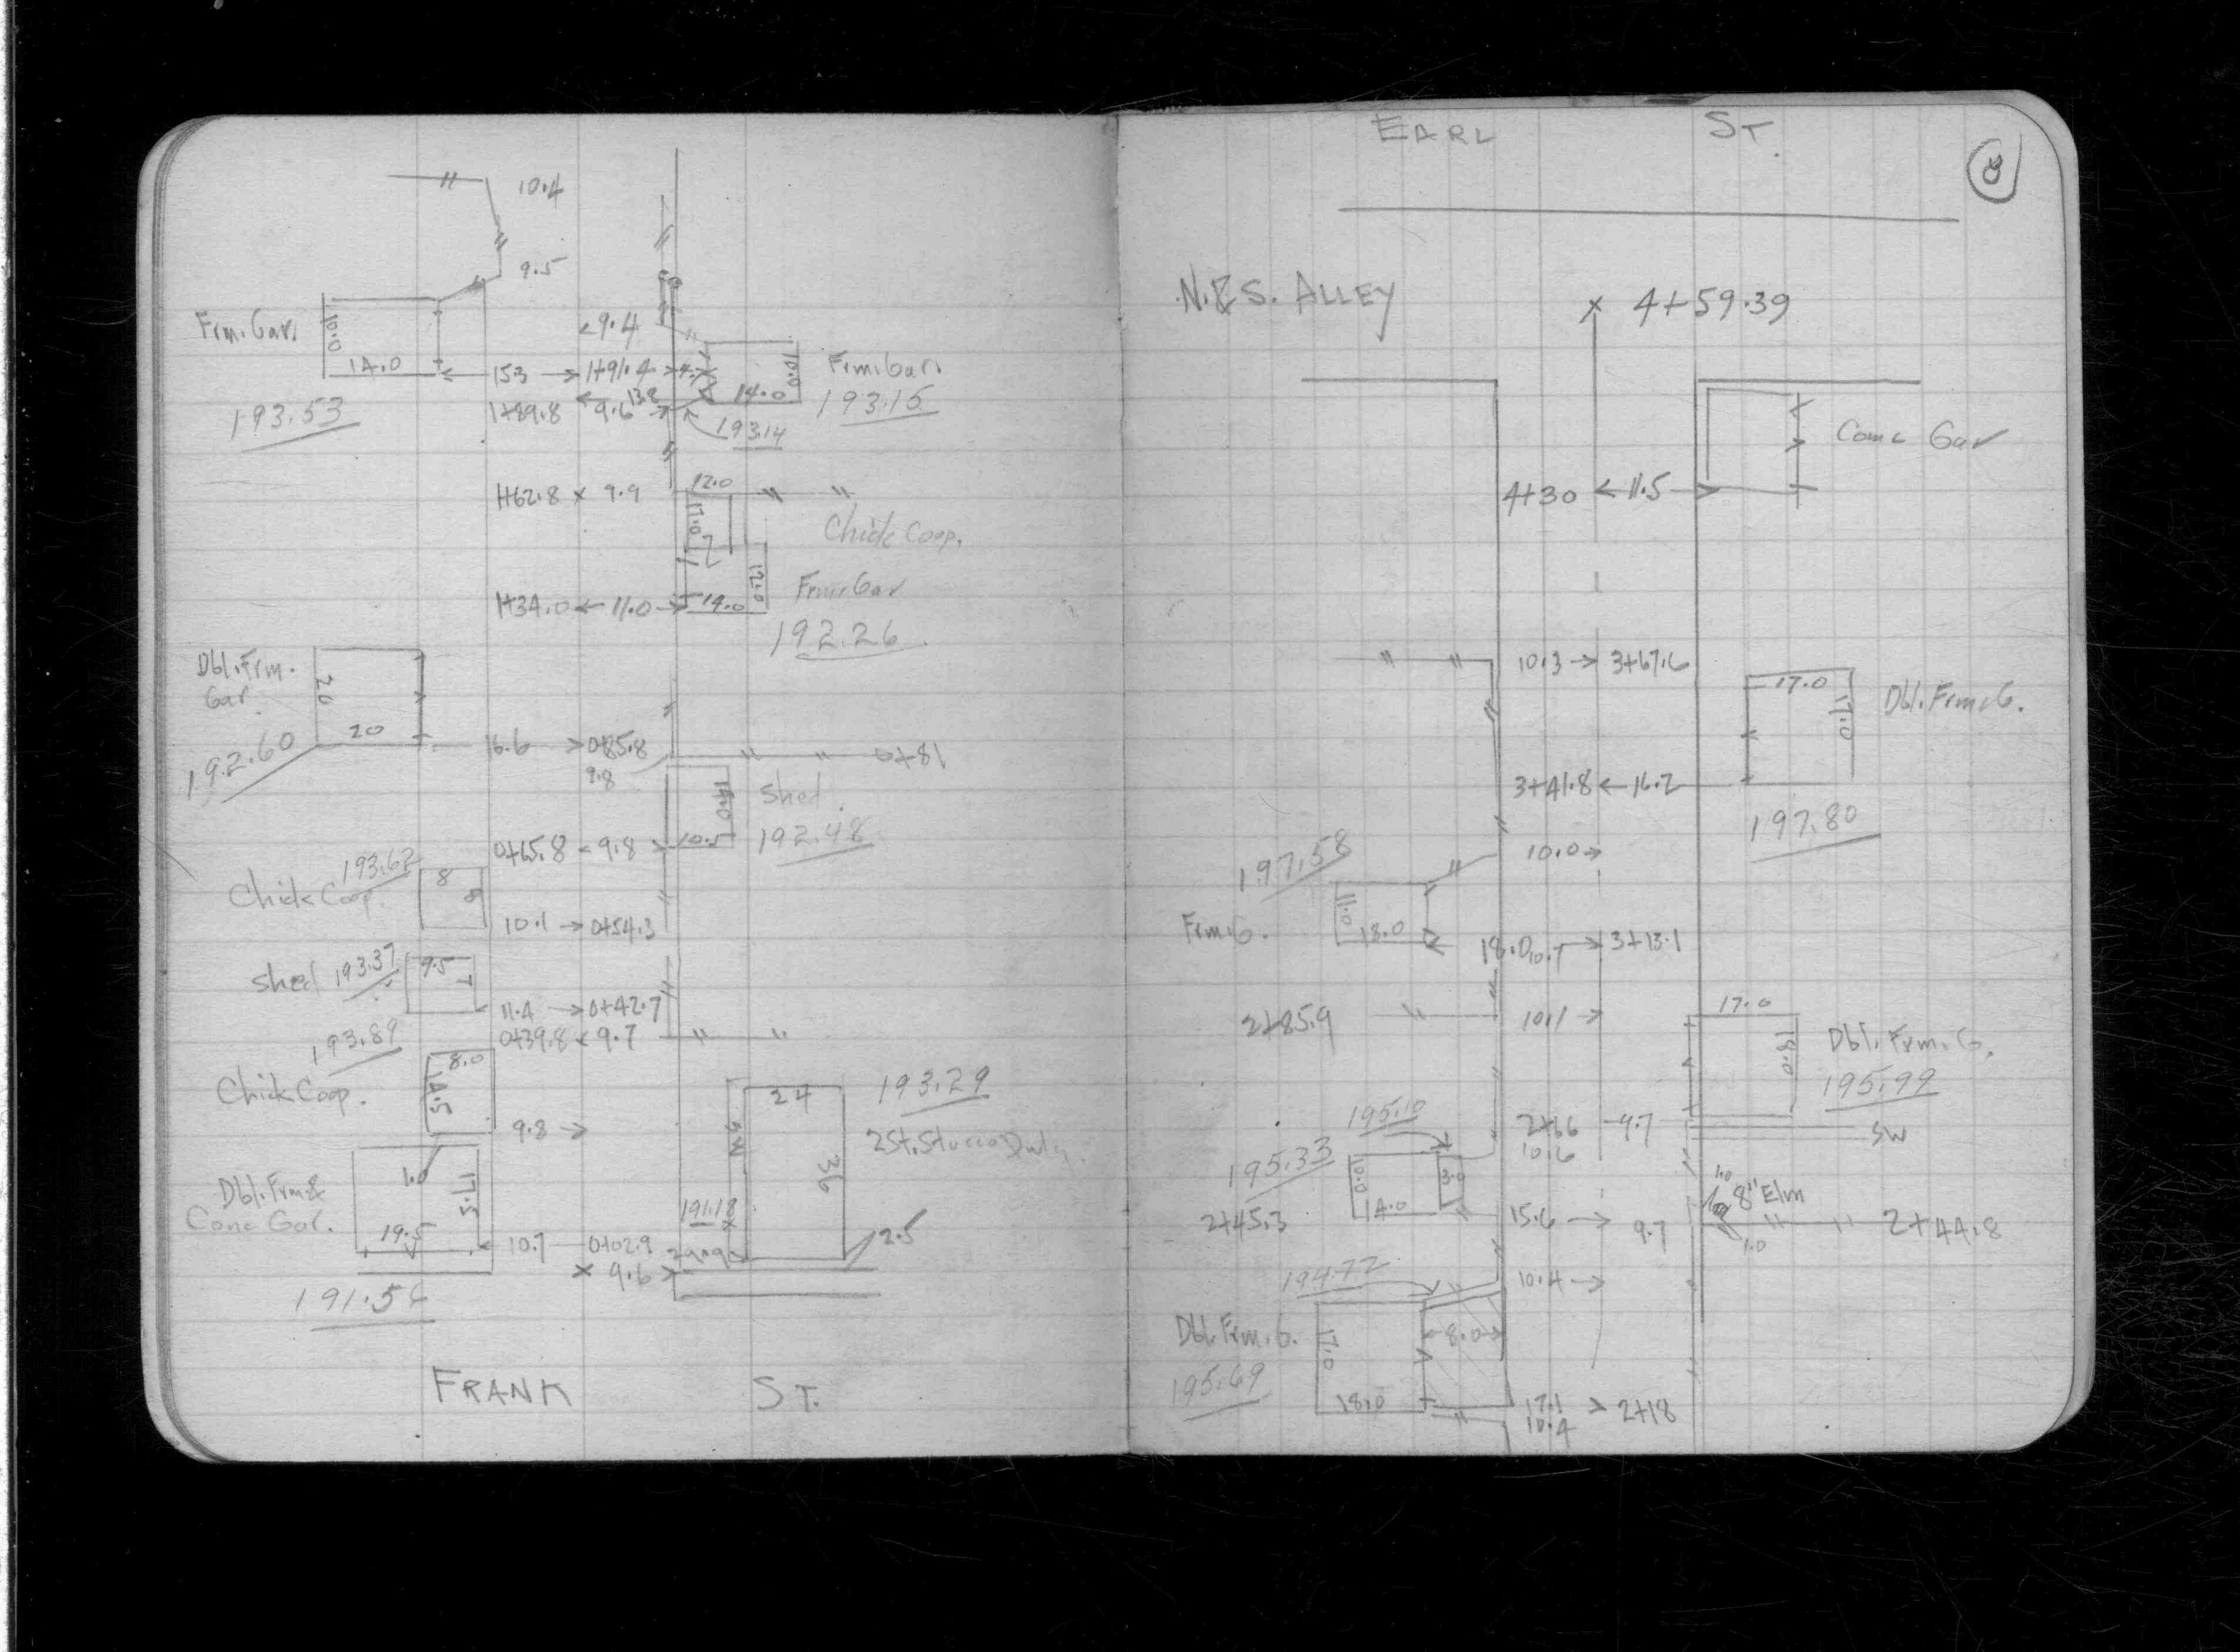 10.4
9.5
Frm. Gar.
10.0
14.0
<9.4
15.3 → 1+91.4
10.0
14.0
Frm. Gar.
193.15
193.53
1+89.8
13.8
9.6
193.14
1+62.8 x 9.9
12.0
17.0
Chick Coop.
1+34.0 ← 11.0 →
14.0
12.0
Frm. Gar
192.26
Dbl. Frm.
Gar.
20
20
192.60
16.6 → 0+85.8
9.8
0+81
14.0
10.5
Shed.
192.48
0+65.8 < 9.8 >
193.62
Chick Coop.
8
8
10.1 → 0+54.3
Shed
193.37
9.5
7
11.4 → 0+42.7
0+39.8 x 9.7
193.89
Chick Coop.
8.0
14.5
9.8 →
24
36
193.29
2 St. Stucco Dwlg.
SW
191.18
x
2.5
Dbl. Frm &
Conc Gar.
1.0
17.5
19.5
← 10.7 0+02.9
29.9
x 9.6 >
191.56
FRANK ST.
EARL ST.
8
N. & S. ALLEY
x 4+59.39
Conc Gar
4+30 ← 11.5 →
10.3 → 3+67.6
17.0
17.0
Dbl. Frm. G.
3+41.8 ← 16.2
197.80
10.0 →
197.58
Frm. G.
11.0
18.0
18.0
10.1 → 3+13.1
2+85.9
10.1 →
17.0
19.0
Dbl. Frm. G.
195.99
2+66 9.7
10.6
SW
195.10
195.33
10.0
14.0
3.0
2+45.3
15.6 →
9.7
1.0
8" Elm
1.0
2+44.8
10.4 →
194.72
Dbl. Frm. G.
17.0
18.0
8.0
195.69
17.1 > 2+18
10.4